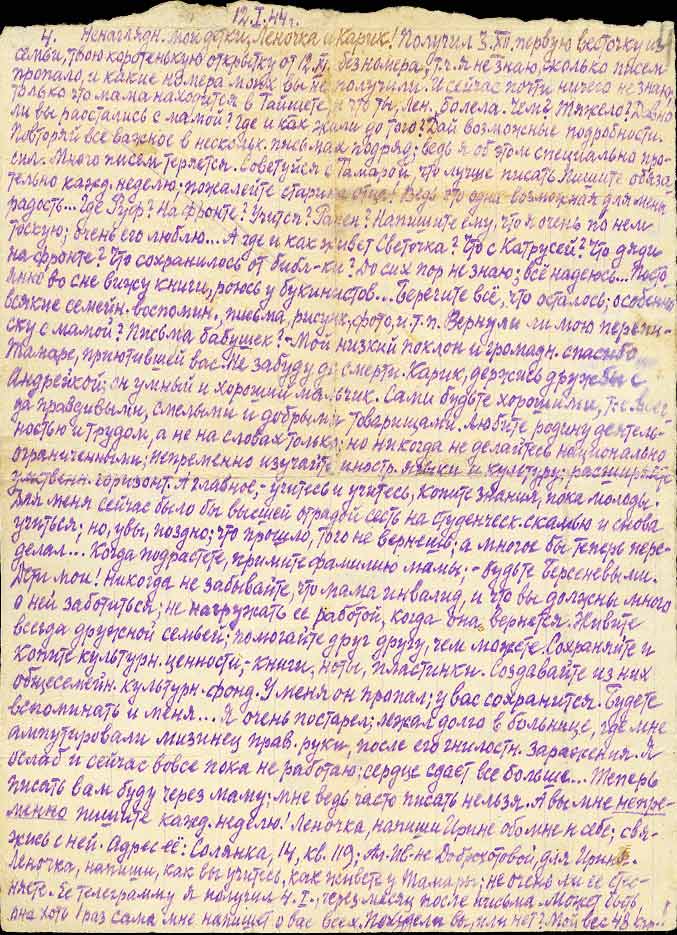 12.I.44 г.
4. Ненаглядн. мои детки, Леночка и Карик! Получил 3.XII. первую весточку из
семьи, твою коротенькую открытку от 12. без номера, т.ч. я не знаю, сколько писем
пропало, и какие номера моих вы не получили. И сейчас почти ничего не знаю,
только что мама находится в Тайшете и что ты, Лен, болела. Чем? Тяжело? Давно
ли вы расстались с мамой? Где и как жили до того? Дай возможные подробности.
Повторяй все важное в нескольк. письмах подряд; ведь я об этом специально про-
сил. Много писем теряется. Советуйся с Тамарой, что лучше писать. Пишите обяза-
тельно кажд. неделю; пожалейте старика отца! Ведь это одна возможная для меня
радость... Где Руф? На фронте? Учится? Ранен? Напишите ему, что я очень по нем
тоскую; очень его люблю... А где и как живет Светочка? Что с Катрусей? Что дяди
на фронте? Что сохранилось от библ-ки? До сих пор не знаю; всё надеюсь... Посто-
янно во сне вижу книги, роюсь у букинистов... Берегите всё, что осталось; особенно
всякие семейн. воспомин., письма, рисунк., фото, и т.п. Вернули ли мою перепи-
ску с мамой? Письма бабушек? – Мой низкий поклон и громадн. спасибо
Тамаре, приютившей вас. Не забуду до смерти. Карик, держись дружбы с
Андрейкой; он умный и хороший мальчик. Сами будьте хорошими, т.е. всег-
да правдивыми, смелыми и добрыми товарищами. Любите родину деятель-
ностью и трудом, а не на словах только; но никогда не делайтесь национально
ограниченными; непременно изучайте иностр. языки и культуру; расширяйте
умственн. горизонт. А главное, – учитесь и учитесь, копите знания, пока молоды.
Для меня сейчас было бы высшей отрадой сесть на студенческ. скамью и снова
учиться; но, увы, поздно; что прошло, того не вернешь; а многое бы теперь пере-
делал... Когда подрастете, примите фамилию мамы, – будьте Берсеневыми.
Дети мои! Никогда не забывайте, что мама инвалид, и что вы должны много
о ней заботиться; не нагружать ее работой, когда она вернется. Живите
всегда дружной семьей; помогайте друг другу, чем можете. Сохраняйте и
копите культурн. ценности, – книги, ноты, пластинки. Создавайте из них
общесемейн. культурн. фонд. У меня он пропал; у вас сохранится. Будете
вспоминать и меня... Я очень постарел; лежал долго в больнице, где мне
ампутировали мизинец прав. руки, после его гнилостн. заражения. Я
ослаб и сейчас вовсе пока не работаю: сердце сдает все больше... Теперь
писать вам буду через маму; мне ведь часто писать нельзя. А вы мне непре-
менно пишите кажд. неделю! Леночка, напиши Ирине обо мне и себе; свя-
жись с ней. Адрес её: Солянка, 14, кв. 119; Ал. Ив-не Доброхотовой, для Ирины.
Леночка, напиши, как вы учитесь, как живете у Тамары; не очень ли ее стес-
няете. Ее телеграмму я получил 4.I., через месяц после письма. Может быть,
она хоть 1 раз сама мне напишет о вас всех. Похудели вы, или нет? Мой вес 48 кгр..!